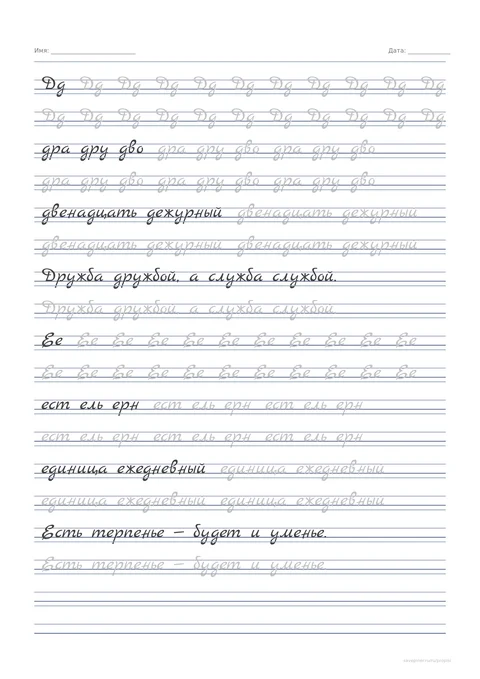 Имя: Дата:
Дд Дд Дд Дд Дд Дд Дд Дд Дд Дд Дд
Дд Дд Дд Дд Дд Дд Дд Дд Дд Дд Дд
дра дру дво дра дру дво дра дру дво
дра дру дво дра дру дво дра дру дво
двенадцать дежурный двенадцать дежурный
двенадцать дежурный двенадцать дежурный
Дружба дружбой, а служба службой.
Дружба дружбой а служба службой
Ее Ее Ее Ее Ее Ее Ее Ее Ее Ее Ее
Ее Ее Ее Ее Ее Ее Ее Ее Ее Ее Ее
ест ель ерн ест ель ерн ест ель ерн
ест ель ерн ест ель ерн ест ель ерн
единица ежедневный единица ежедневный
единица ежедневный единица ежедневный
Есть терпенье – будет и уменье.
Есть терпенье – будет и уменье